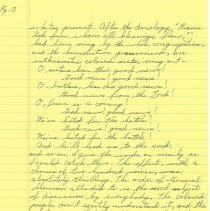 Pg. 3
whites present. After the doxology, "Praise
God from whom all blessings flow,"
had been sung by the whole congregation,
and the benediction pronounced, an
enthusiastic colored sister sang out—
O, sisters has dis good news!
Good news! good news!
O, brothers, has dis good news!
Good news from the Lord!
O, Jesus is a coming!
Good news! good news!
We're listed for the battle!
Good news! good news!
We're listed for the battle!
And he'll lead us to the end,
and so on, I give the words as nearly as
I could catch them. The effect, with a
chorus of five hundred voices, was
absolutely thrilling. The order of General
Sherman alluded to is the
of discussion by everybody. The colored
people don't exactly understand it, and the